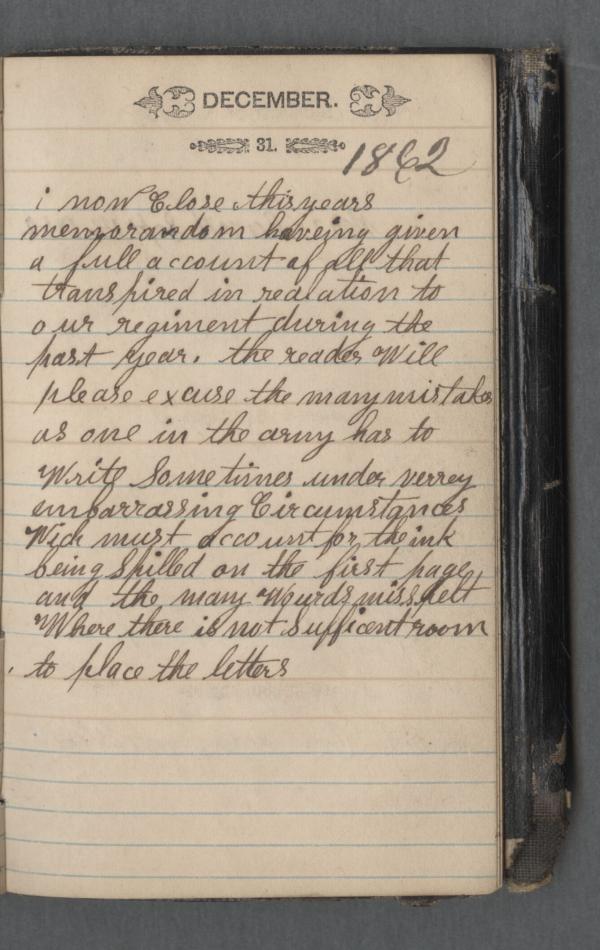 DECEMBER.
31.
1862
i now Close this years
memorandom haveing given
a full account of all that
transpired in realation to
our regiment during the
past year. the reader Will
please excuse the many mistakes
as one in the army has to
Write Sometimes under verrey
embarrassing Circumstances
Wich must account for the ink
being Spilled on the first page
and the many Wourds misspelt
Where there is not Sufficent room
to place the letters